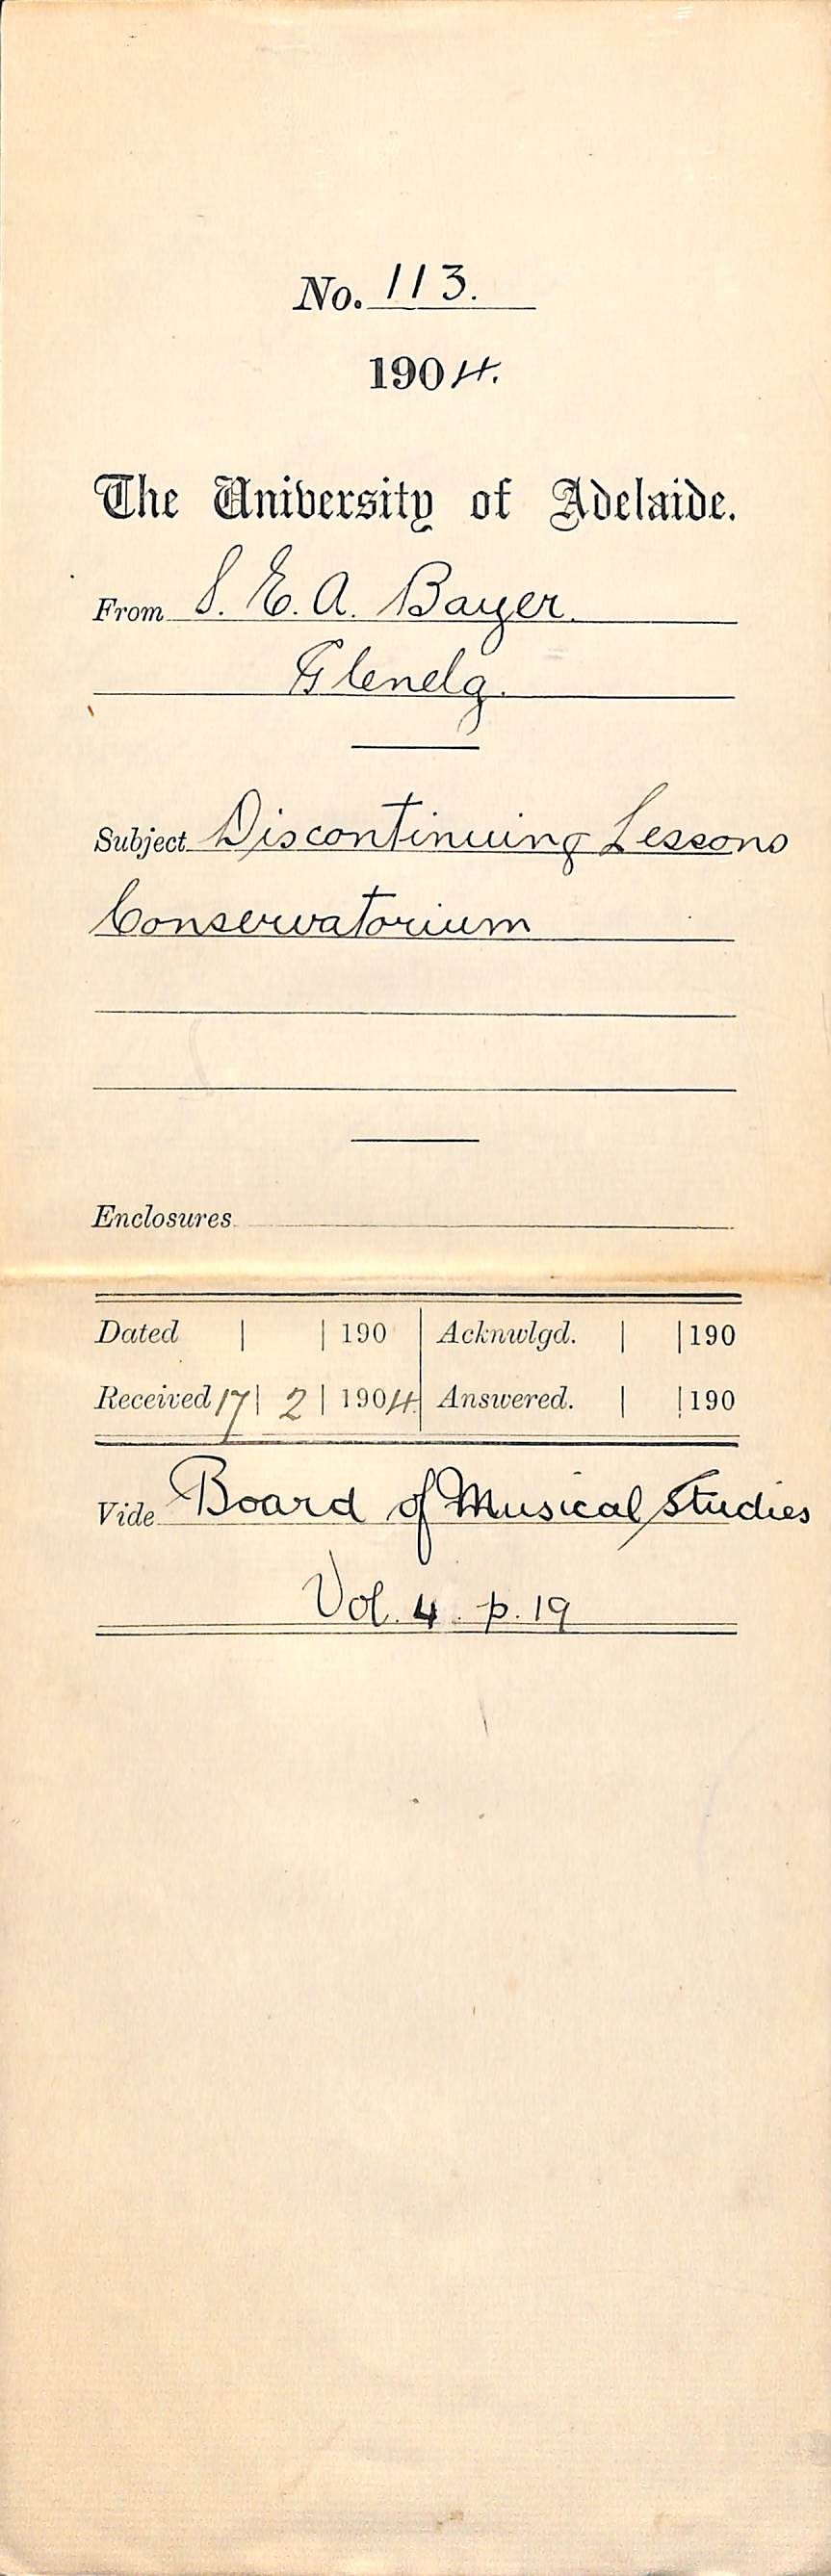 No. 113.
1904.
The University of Adelaide.
From S. E. A. Bayer.
Glenelg.
Subject Discontinuing Lessons
Conservatorium
Enclosures
Dated | | 190 | Acknwlgd. | | 190
Received 17 | 2 | 1904. | Answered. | | 190
Vide Board of Musical Studies
Vol. 4. p. 19